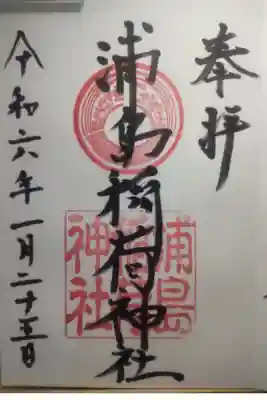 奉拝
浦島稲荷神社
令和六年一月二十五日
浦島
稲荷
神社